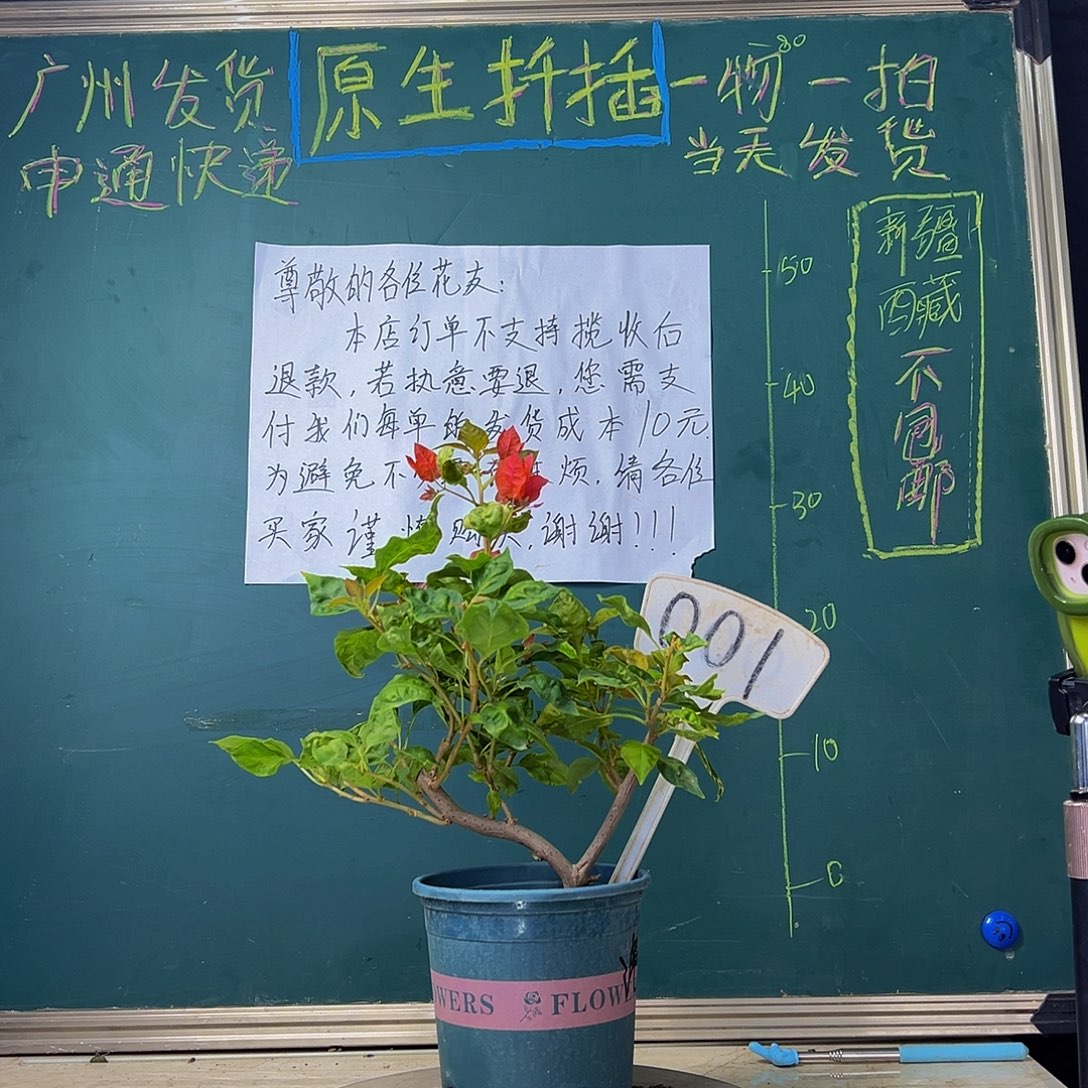 广州发货
申通快递
原生扦插
一物一拍
当天发货
80
50
40
30
20
10
0
新疆
西藏
不包邮
尊敬的各位花友:
本店订单不支持揽收后
退款,若执意要退,您需支
付我们每单的发货成本10元.
为避免不 烦.请各位
买家谨慎购买,谢谢!!!
001
WERS FLOW